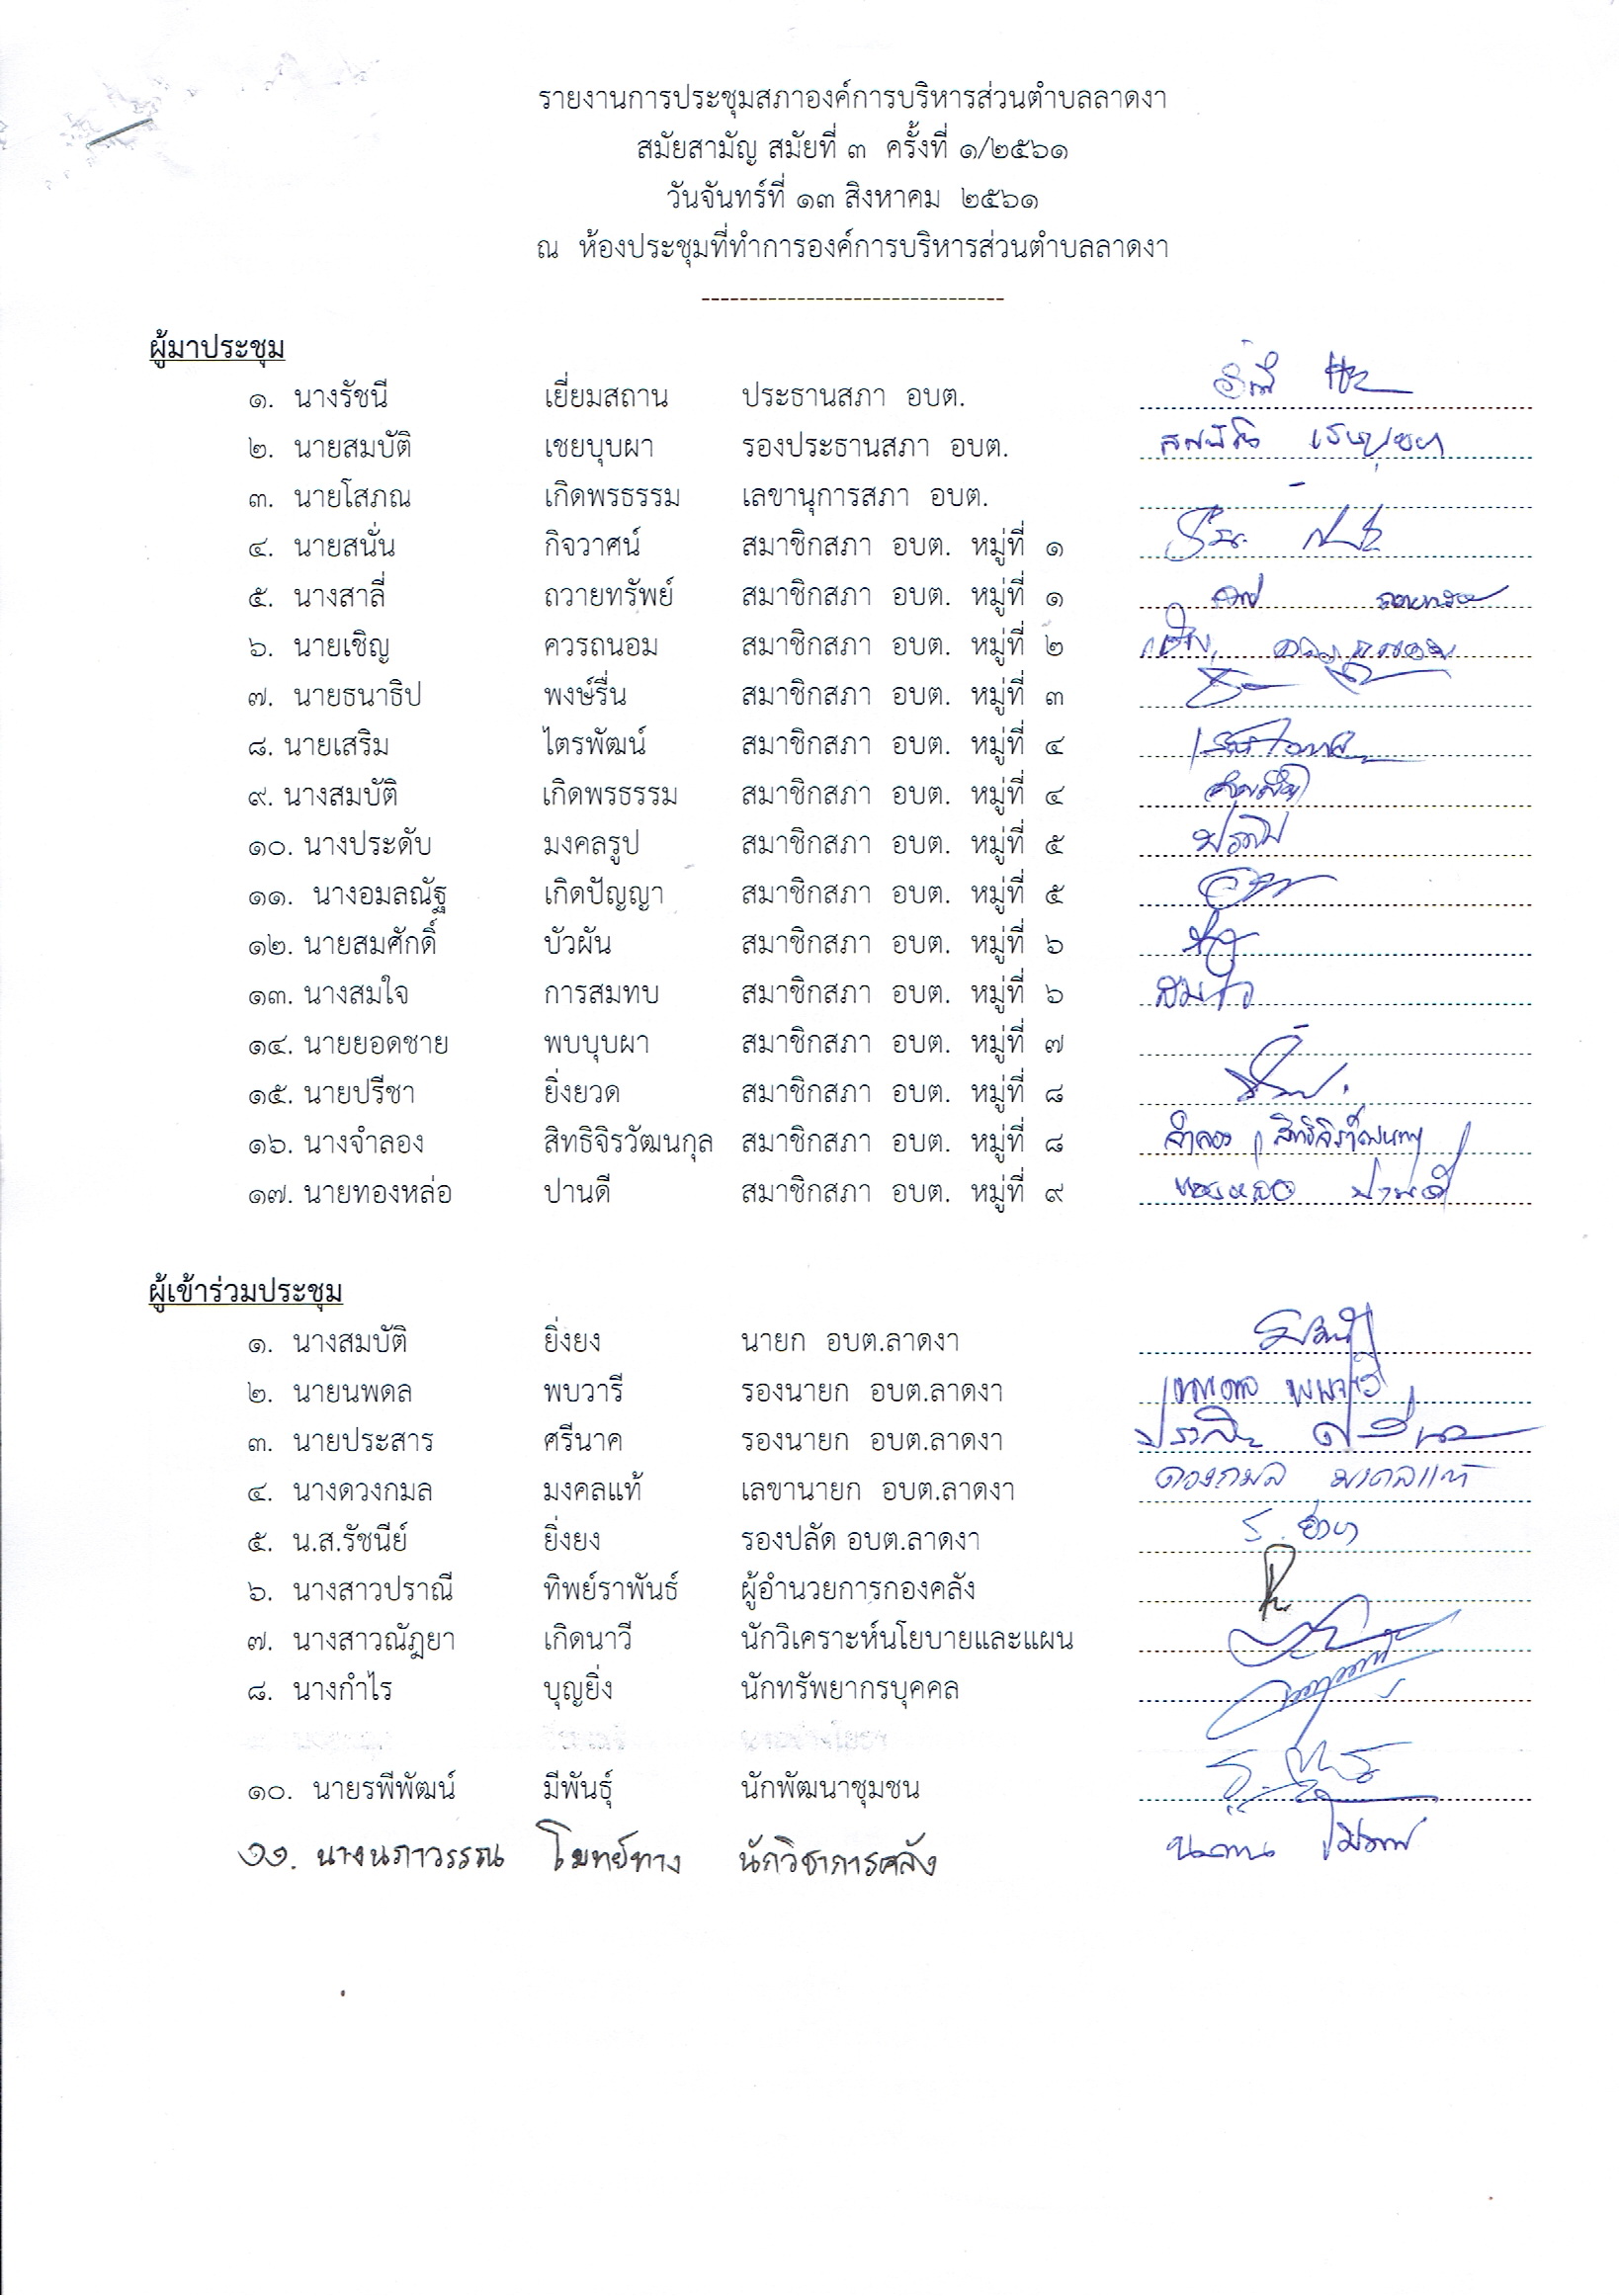 รายงานการประชุมสภาองค์การบริหารส่วนตำบลลาดงา
สมัยสามัญ สมัยที่ ๓ ครั้งที่ ๑/๒๕๖๑
วันจันทร์ที่ ๑๓ สิงหาคม ๒๕๖๑
ณ ห้องประชุมที่ทำการองค์การบริหารส่วนตำบลลาดงา
--------------------------------
ผู้มาประชุม
๑. นางรัชนี เยี่ยมสถาน ประธานสภา อบต.
๒. นายสมบัติ เชยบุบผา รองประธานสภา อบต. สมบัติ เชยบุบผา
๓. นายโสภณ เกิดพรธรรม เลขานุการสภา อบต. -
๔. นายสนั่น กิจวาศน์ สมาชิกสภา อบต. หมู่ที่ ๑
๕. นางสาลี่ ถวายทรัพย์ สมาชิกสภา อบต. หมู่ที่ ๑
๖. นายเชิญ ควรถนอม สมาชิกสภา อบต. หมู่ที่ ๒ เชิญ ควรถนอม
๗. นายธนาธิป พงษ์รื่น สมาชิกสภา อบต. หมู่ที่ ๓
๘. นายเสริม ไตรพัฒน์ สมาชิกสภา อบต. หมู่ที่ ๔
๙. นางสมบัติ เกิดพรธรรม สมาชิกสภา อบต. หมู่ที่ ๔
๑๐. นางประดับ มงคลรูป สมาชิกสภา อบต. หมู่ที่ ๕ ประดับ
๑๑. นางอมลณัฐ เกิดปัญญา สมาชิกสภา อบต. หมู่ที่ ๕
๑๒. นายสมศักดิ์ บัวผัน สมาชิกสภา อบต. หมู่ที่ ๖
๑๓. นางสมใจ การสมทบ สมาชิกสภา อบต. หมู่ที่ ๖ สมใจ
๑๔. นายยอดชาย พบบุบผา สมาชิกสภา อบต. หมู่ที่ ๗ -
๑๕. นายปรีชา ยิ่งยวด สมาชิกสภา อบต. หมู่ที่ ๘
๑๖. นางจำลอง สิทธิจิรวัฒนกุล สมาชิกสภา อบต. หมู่ที่ ๘ จำลอง สิทธิจิรวัฒนกุล
๑๗. นายทองหล่อ ปานดี สมาชิกสภา อบต. หมู่ที่ ๙ ทองหล่อ ปานดี
ผู้เข้าร่วมประชุม
๑. นางสมบัติ ยิ่งยง นายก อบต.ลาดงา
๒. นายนพดล พบวารี รองนายก อบต.ลาดงา นพดล พบวารี
๓. นายประสาร ศรีนาค รองนายก อบต.ลาดงา ประสาร ศรีนาค
๔. นางดวงกมล มงคลแท้ เลขานายก อบต.ลาดงา ดวงกมล มงคลแท้
๕. น.ส.รัชนีย์ ยิ่งยง รองปลัด อบต.ลาดงา
๖. นางสาวปราณี ทิพย์ราพันธ์ ผู้อำนวยการกองคลัง
๗. นางสาวณัฎยา เกิดนาวี นักวิเคราะห์นโยบายและแผน
๘. นางกำไร บุญยิ่ง นักทรัพยากรบุคคล
๑๐. นายรพีพัฒน์ มีพันธุ์ นักพัฒนาชุมชน
๑๑. นางนภาวรรณ โมทย์ทาง นักวิชาการคลัง